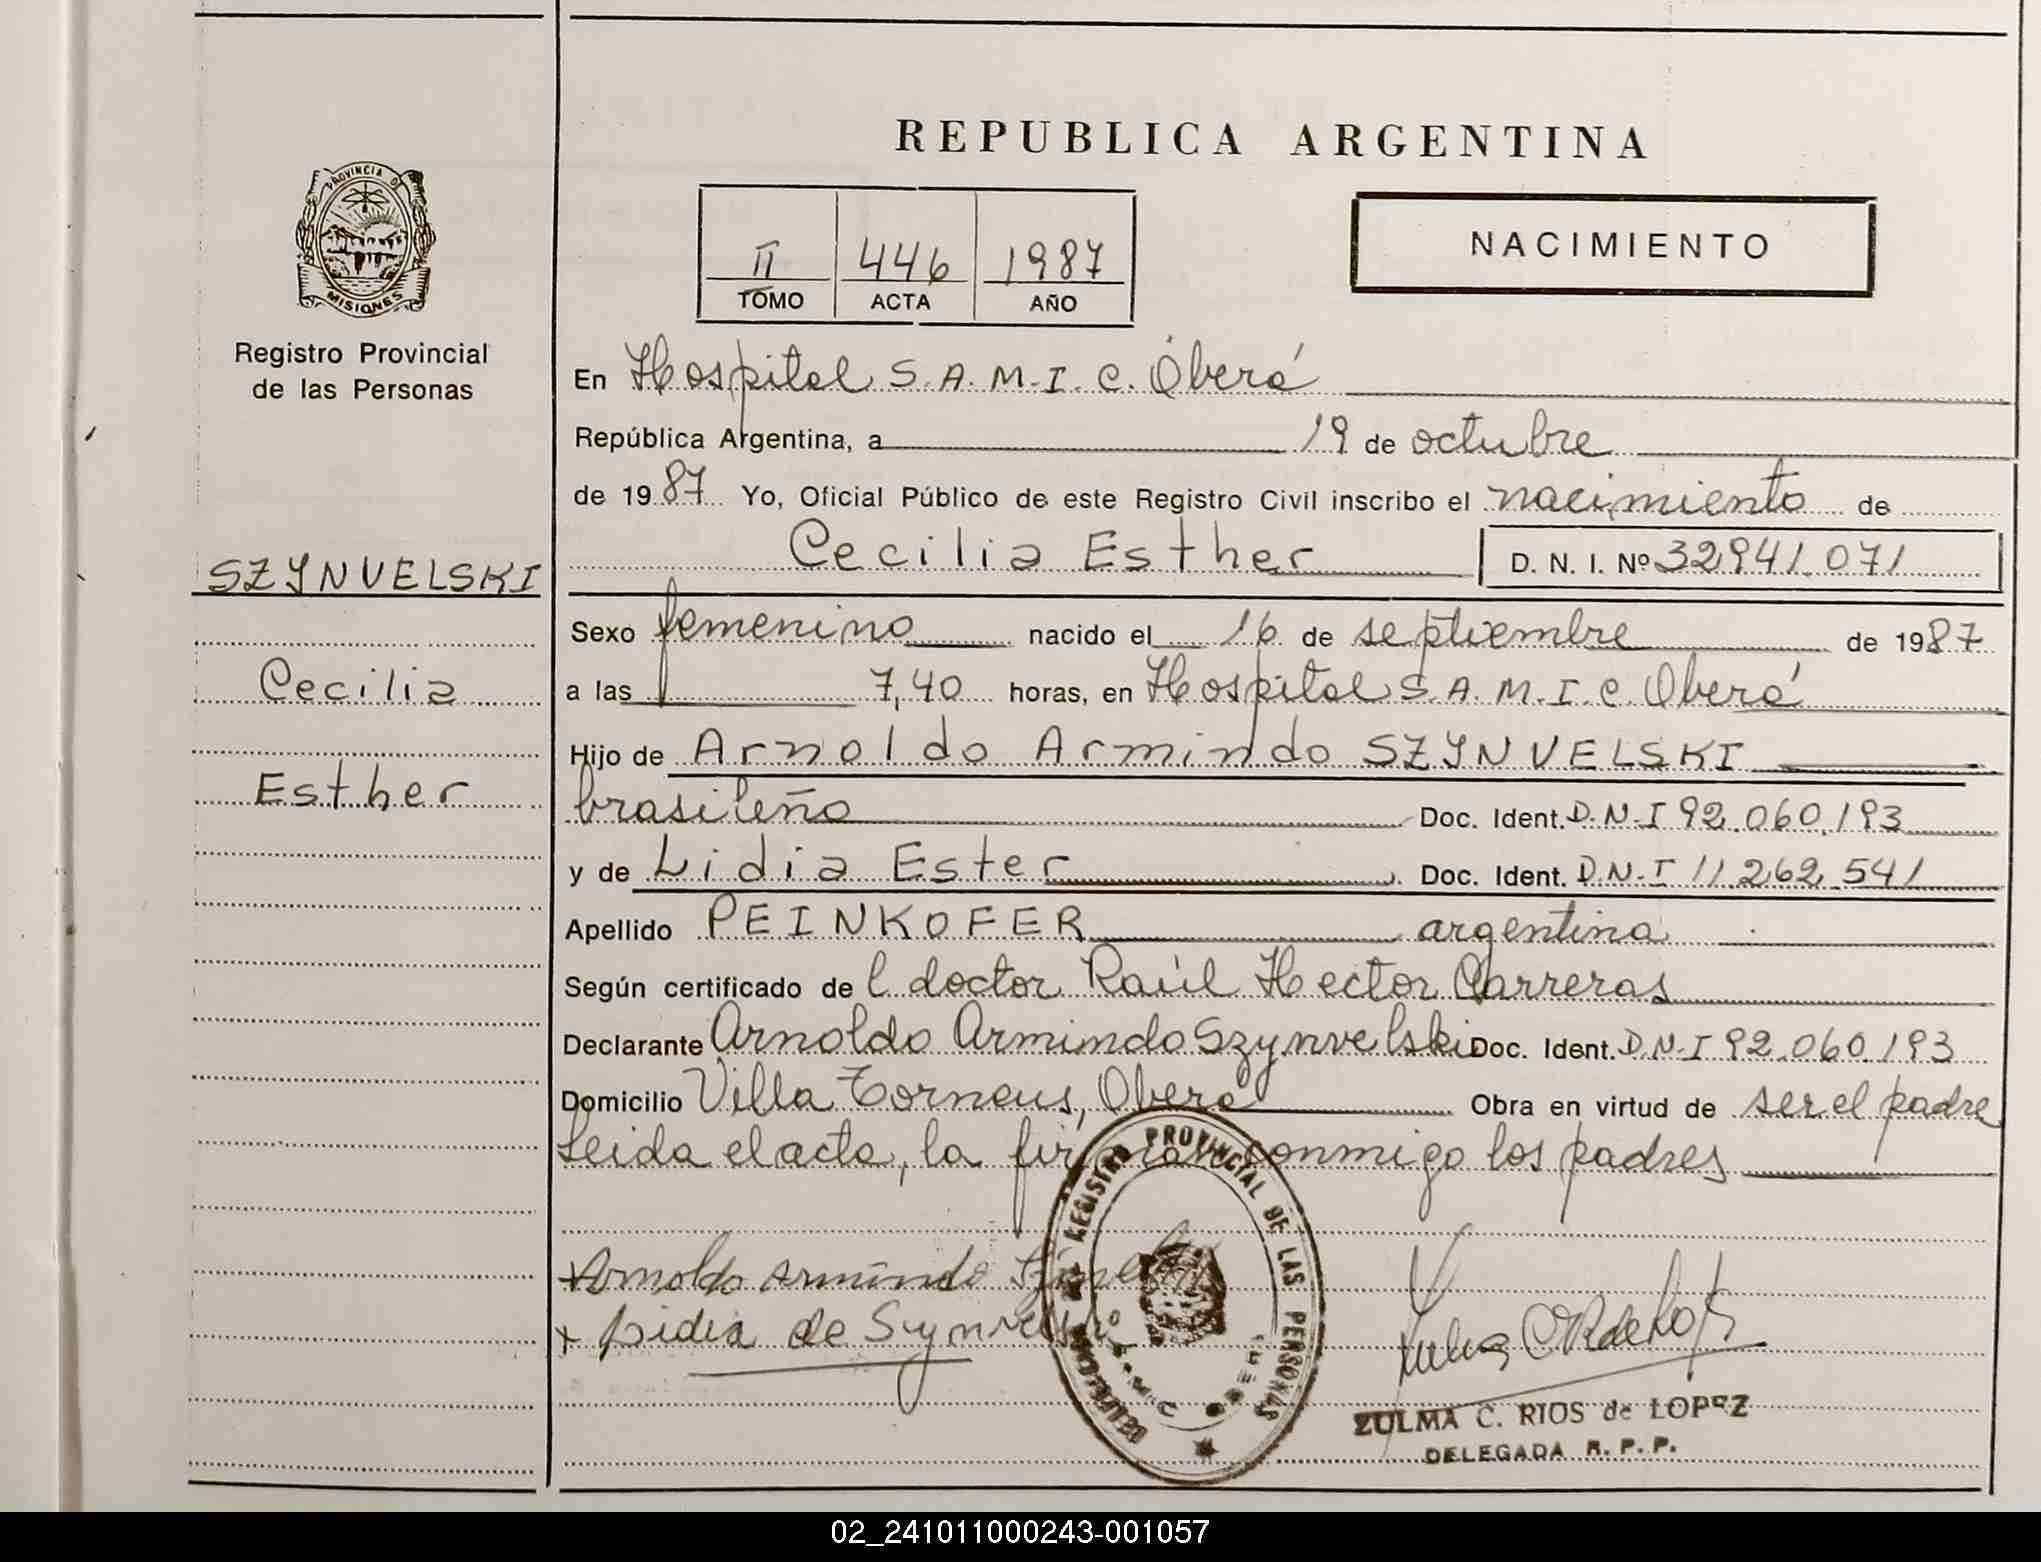 REPUBLICA ARGENTINA
PROVINCIA DE
MISIONES
Registro Provincial
de las Personas
II 446 1987
TOMO ACTA AÑO
NACIMIENTO
En Hospital S.A.M.I.C. Oberá
República Argentina, a 19 de octubre
de 1987 Yo, Oficial Público de este Registro Civil inscribo el nacimiento de
Cecilia Esther D. N. I. Nº 32941.071
SZYNVELSKI
Cecilia
Esther
Sexo femenino nacido el 16 de septiembre de 1987
a las 7,40 horas, en Hospital S.A.M.I.C. Oberá
Hijo de Arnoldo Armindo SZYNVELSKI
brasileño Doc. Ident. D.N.I 92.060.193
y de Lidia Ester Doc. Ident. D.N.I 11.262.541
Apellido PEINKOFER argentina
Según certificado de l doctor Raúl Hector Carreras
Declarante Arnoldo Armindo Szynvelski Doc. Ident. D.N.I 92.060.193
Domicilio Villa Torneus, Oberá Obra en virtud de ser el padre
Leida el acta, la firman conmigo los padres
Arnoldo Armindo
Lidia de
REGISTRO PROVINCIAL DE LAS PERSONAS
ZULMA C. RIOS de LOPEZ
DELEGADA R. P. P.
02_241011000243-001057